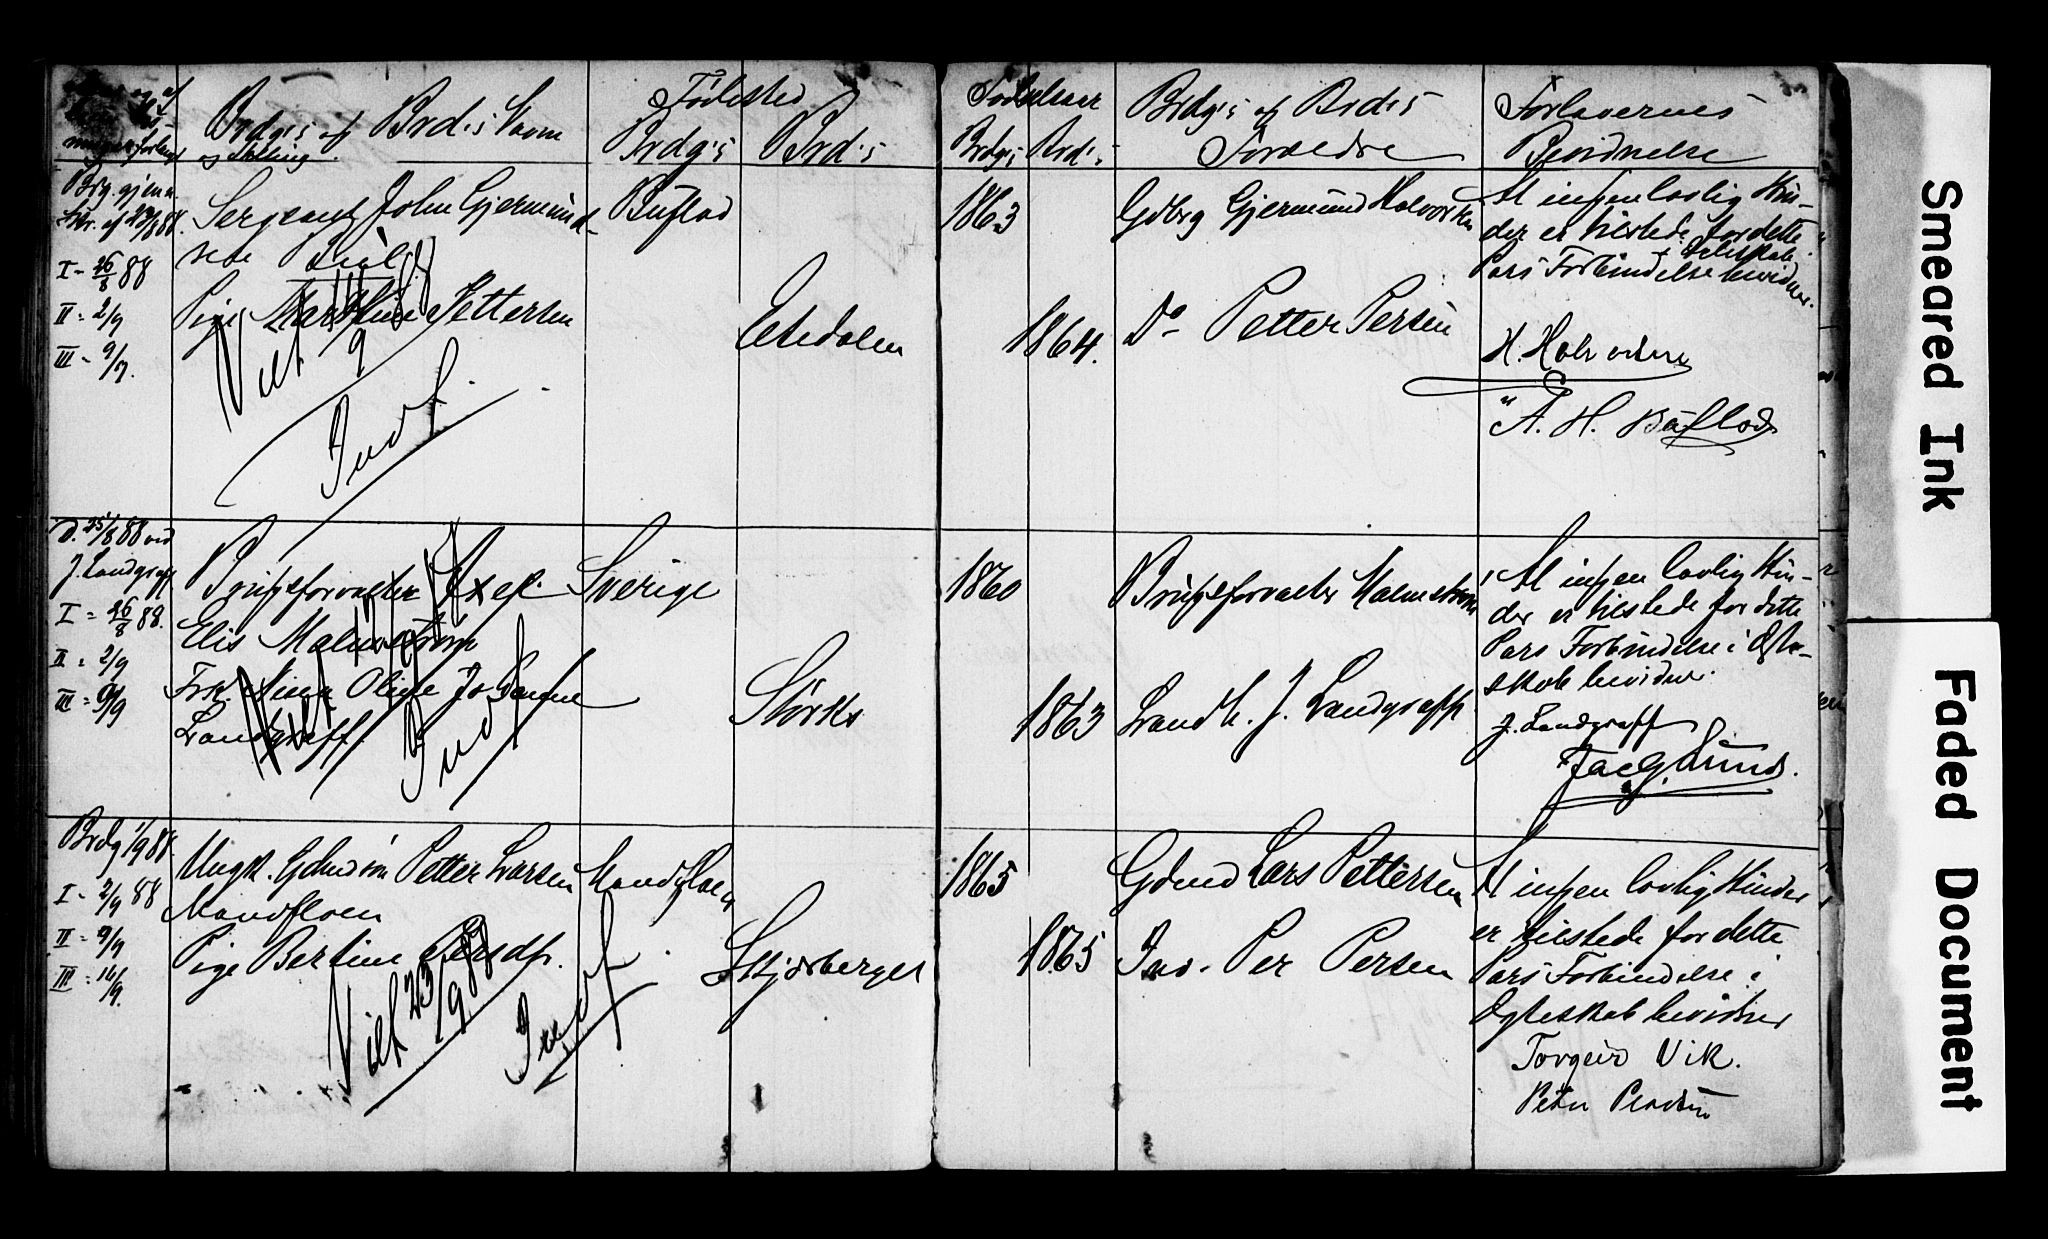 Brdg's og Brd's Navn
og Stilling.
Fødested
Brdg's Brd's
Fødselsaar
Brdg's Brd's
Brdg's og Brd's
Forældre
Forlovernes
Bevidnelse
Brg. gjenn.
Skr. af 23/8 88.
I = 26/8 88
II = 2/9
III = 9/9.
Sergeant John Gjermund-
sen
Pige Mathilde Pettersen
Viet 9
Indf.
Buflod
Etsdalen
1863
1864.
Gdbrg Gjermund Halvorsen
Do Petter Persen
At ingen lovlig Hin-
der er tilstede for dette
Pars Forbindelse i Ægteskab bevidner.
H. Halvorsen
A. H. Buflod
D. 25/8 88 ved
J. Landgraff
I = 26/8 88.
II = 2/9
III = 9/9
Brugsforvalter Axel
Elis Malmstrøm
Frk. Nina Oline Johanne
Landgraff.
Viet
Indf
Sverige
Størks
1860
1863
Brugsforvalter Malmstrøm
Landh. J. Landgraff
At ingen lovlig Hin-
der er tilstede for dette
Pars Forbindelse i Ægte-
skab bevidner.
J. Landgraff
Jac G. Lund.
Brdg 1/9 88.
I = 2/9 88
II = 9/9
III = 16/9.
Ungk. Gdmdsøn Petter Larsen
Mandfloen
Pige Bertine Persdtr.
Viet 23/9 88
Indf
Mandfloen
Skjærberget
1865
1865
Gdmd Lars Pettersen
Ind. Per Persen
At ingen lovlig Hinder
er tilstede for dette
Pars Forbindelse i
Ægteskab bevidner
Torgeir Vik.
Peter
Smeared Ink
Faded Document